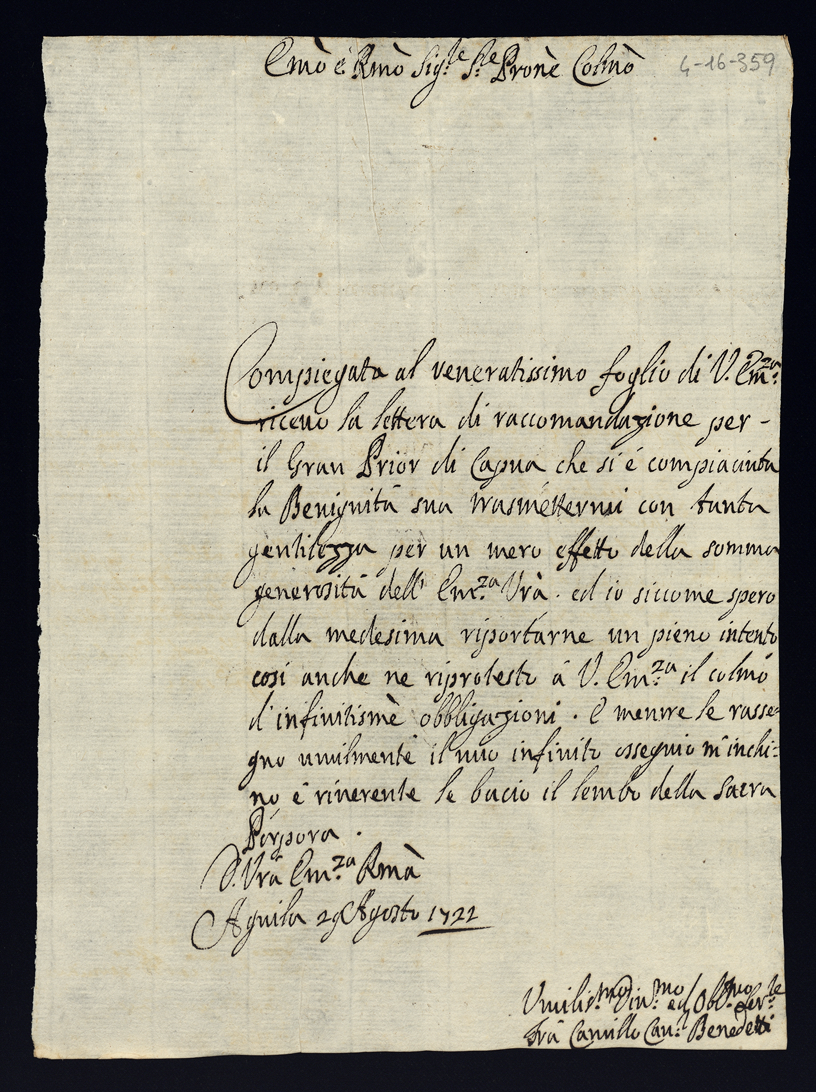 Emõ è Rmõ Sig.re S.re Pronè Colmõ
4-16-359
Compiegata al veneratissimo foglio di V. Em.za
ricevo la lettera di raccomandazione per -
il Gran Prior di Capua che si é compiacinta
la Benignità sua trasmettermi con tanta
gentilezza per un mero effetto della somma
generosità dell' Em.za Vrà. ed io siccome spero
dalla medesima riportarne un pieno intento
così anche ne riprotesto á V. Em.za il colmo
d'infinitismè obbligazioni. E mentre le rasse=
gno umilmente il mio infinito ossequio m'inchi=
no é riverente le bacio il lembo della Sacra
Porpora.
D. Vrã Em.za Rmã
Aquila 29 Agosto 1722
Umilis.mo Div.mo ed Obb.mo Ser.re
Frà Camillo Cav.r Benedetti